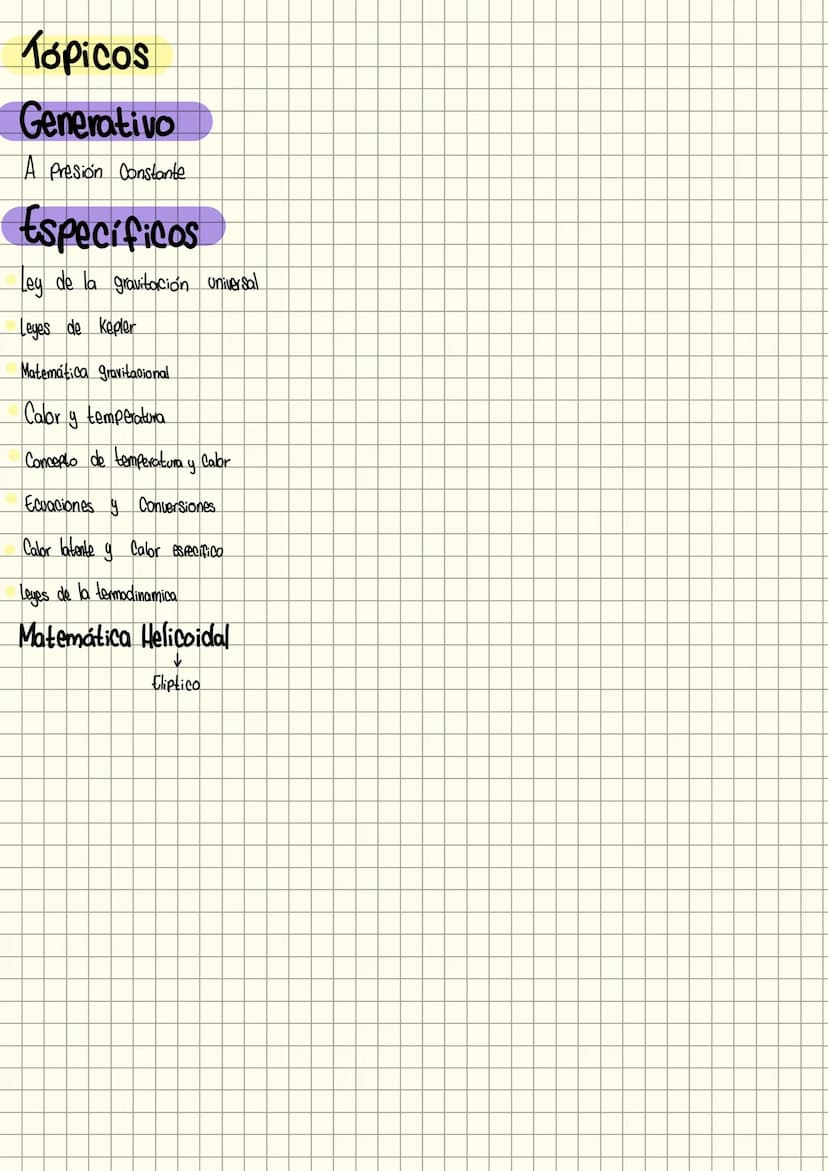 Tópicos
Generativo
A presión constante
Específicos
Ley de la gravitación universal
Leyes de Kepler
Matemática gravitacional
Calor y temperatura
Concepto de temperatura y calor
Ecuaciones y conversiones
Calor latente y calor específico
Leyes de la termodinamica
Matemática Helicoidal
↓
Elíptico